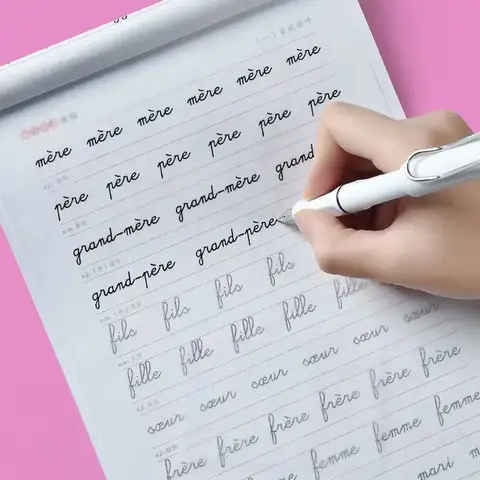 mère mère mère mère mère mère
père père père père père père
grand-mère grand-mère grand
grand-père grand-père
fils fils fils fils
fille fille fille fille fille
sœur sœur sœur sœur sœur sœur
frère frère frère frère frère frère
femme femme femme
mari m